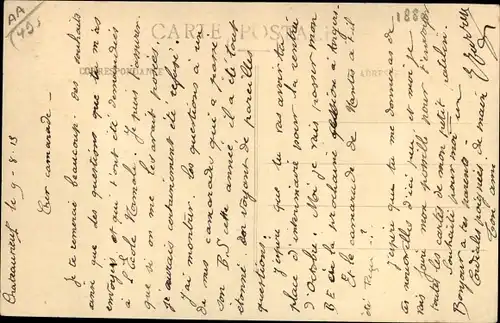 AA
45.
188
CARTE POSTALE
CORRESPONDANCE
ADRESSE
Chateauneuf le 9-8-13
Cher camarade -
Je te remercie beaucoup des souhaits
ainsi que des questions que tu m'as
envoyés et qui t'ont été demandées
à l'Ecole Normale. Je puis t'assurer
que si on me les avait posées
je aurais certainement été refusé.
J'ai montré les questions à un
de mes camarades qui a passé
son B.S cette année, il a été tout
étonné en voyant de pareilles
questions.
J'espère que tu vas avoir ta
place d'intérimaire pour la rentrée
d'Octobre. Moi je vais passer mon
BE en la prochaine session à
Et le camarade de Nantes a-t-il
été
J'espère que tu me donneras de
tes nouvelles d'ici peu et moi je
vais faire mon possible pour t'envoyer
toutes les cartes de mon petit patelin.
Bonjour à tes parents
Cordiale poignée de main